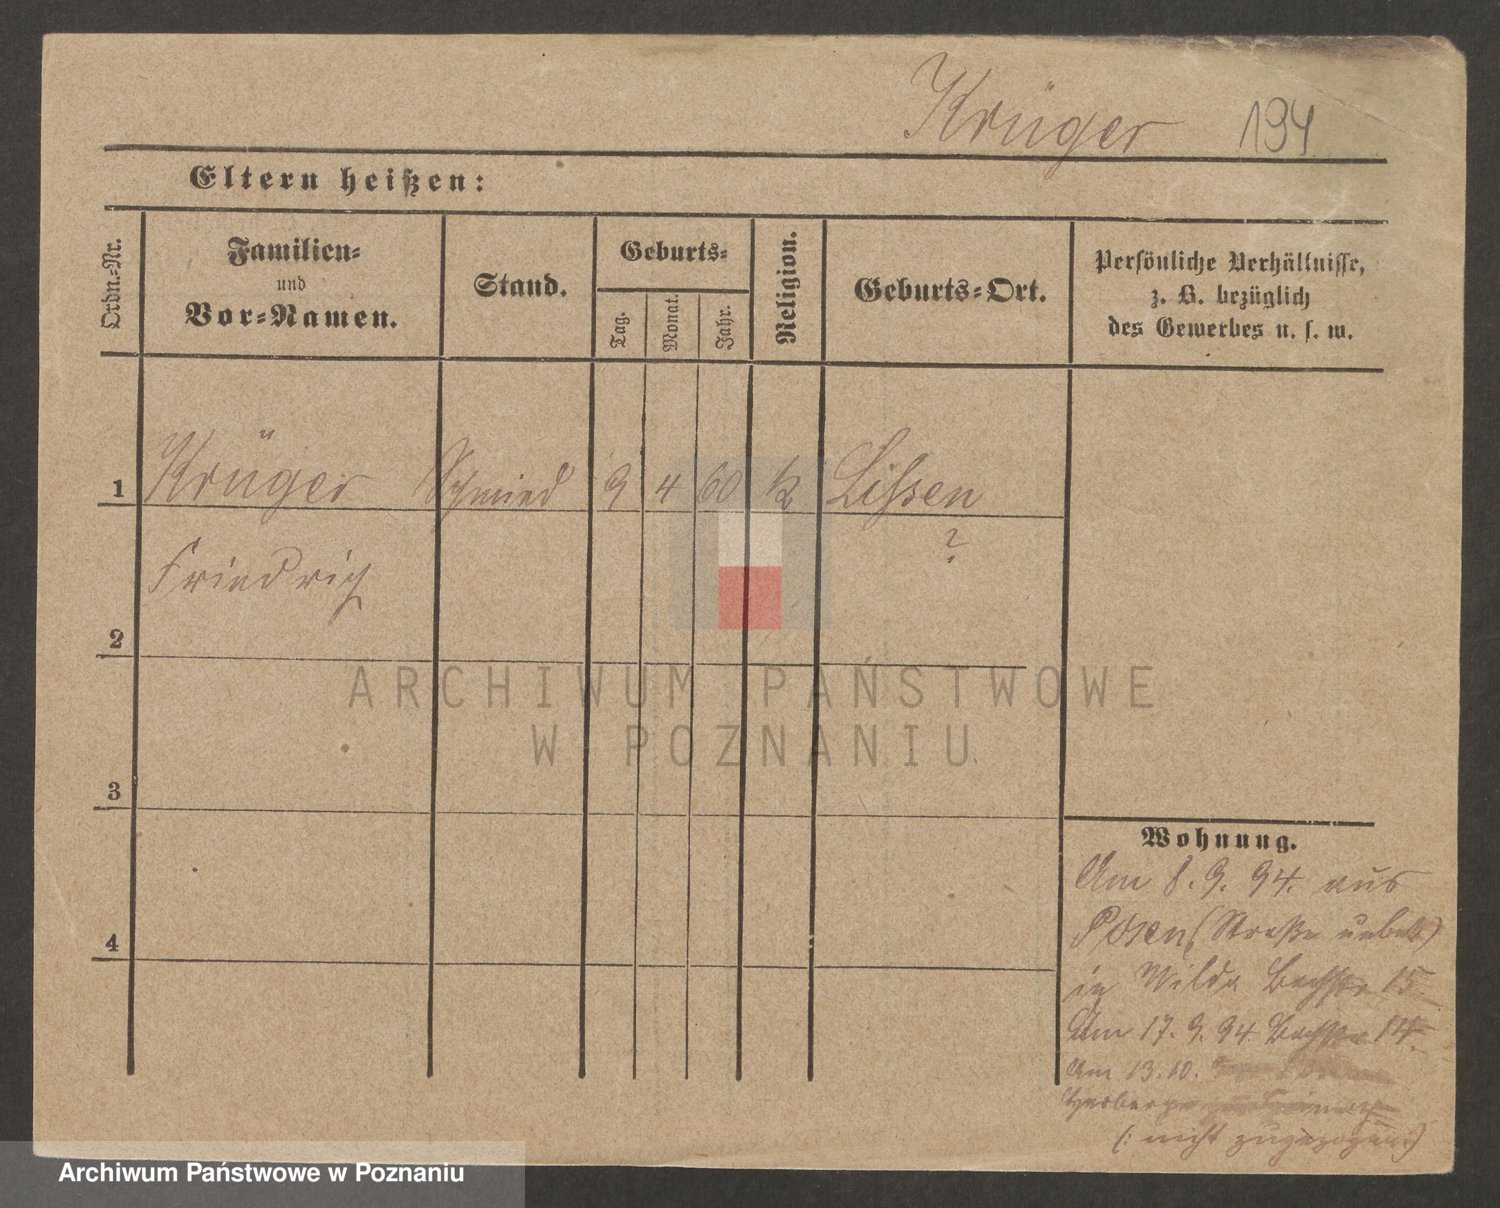 Krüger 194
Eltern heißen:
Ordn.=Nr.
Familien=
und
Vor=Namen.
Stand.
Geburts=
Tag.
Monat.
Jahr.
Religion.
Geburts=Ort.
Persönliche Verhältnisse,
z. B. bezüglich
des Gewerbes u. s. w.
1 Krüger Schmied 9 4 60 k Lissen
?
Friedrich
2
ARCHIWUM PAŃSTWOWE
W POZNANIU
3
Wohnung.
Am 8. 9. 94. aus
Posen (Straße unbek.)
in Wilda Bachstr 15
4
Am 17. 9. 94 Bachstr 14.
Am 13. 10.
Herberge
(: nicht zugezogen :)
Archiwum Państwowe w Poznaniu